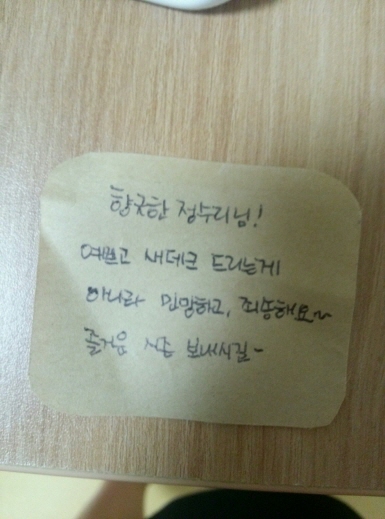 향긋한 정수리님!
예쁘고 새데크 드리는게
아니라 민망하고, 죄송해요~
즐거운 보내시길~